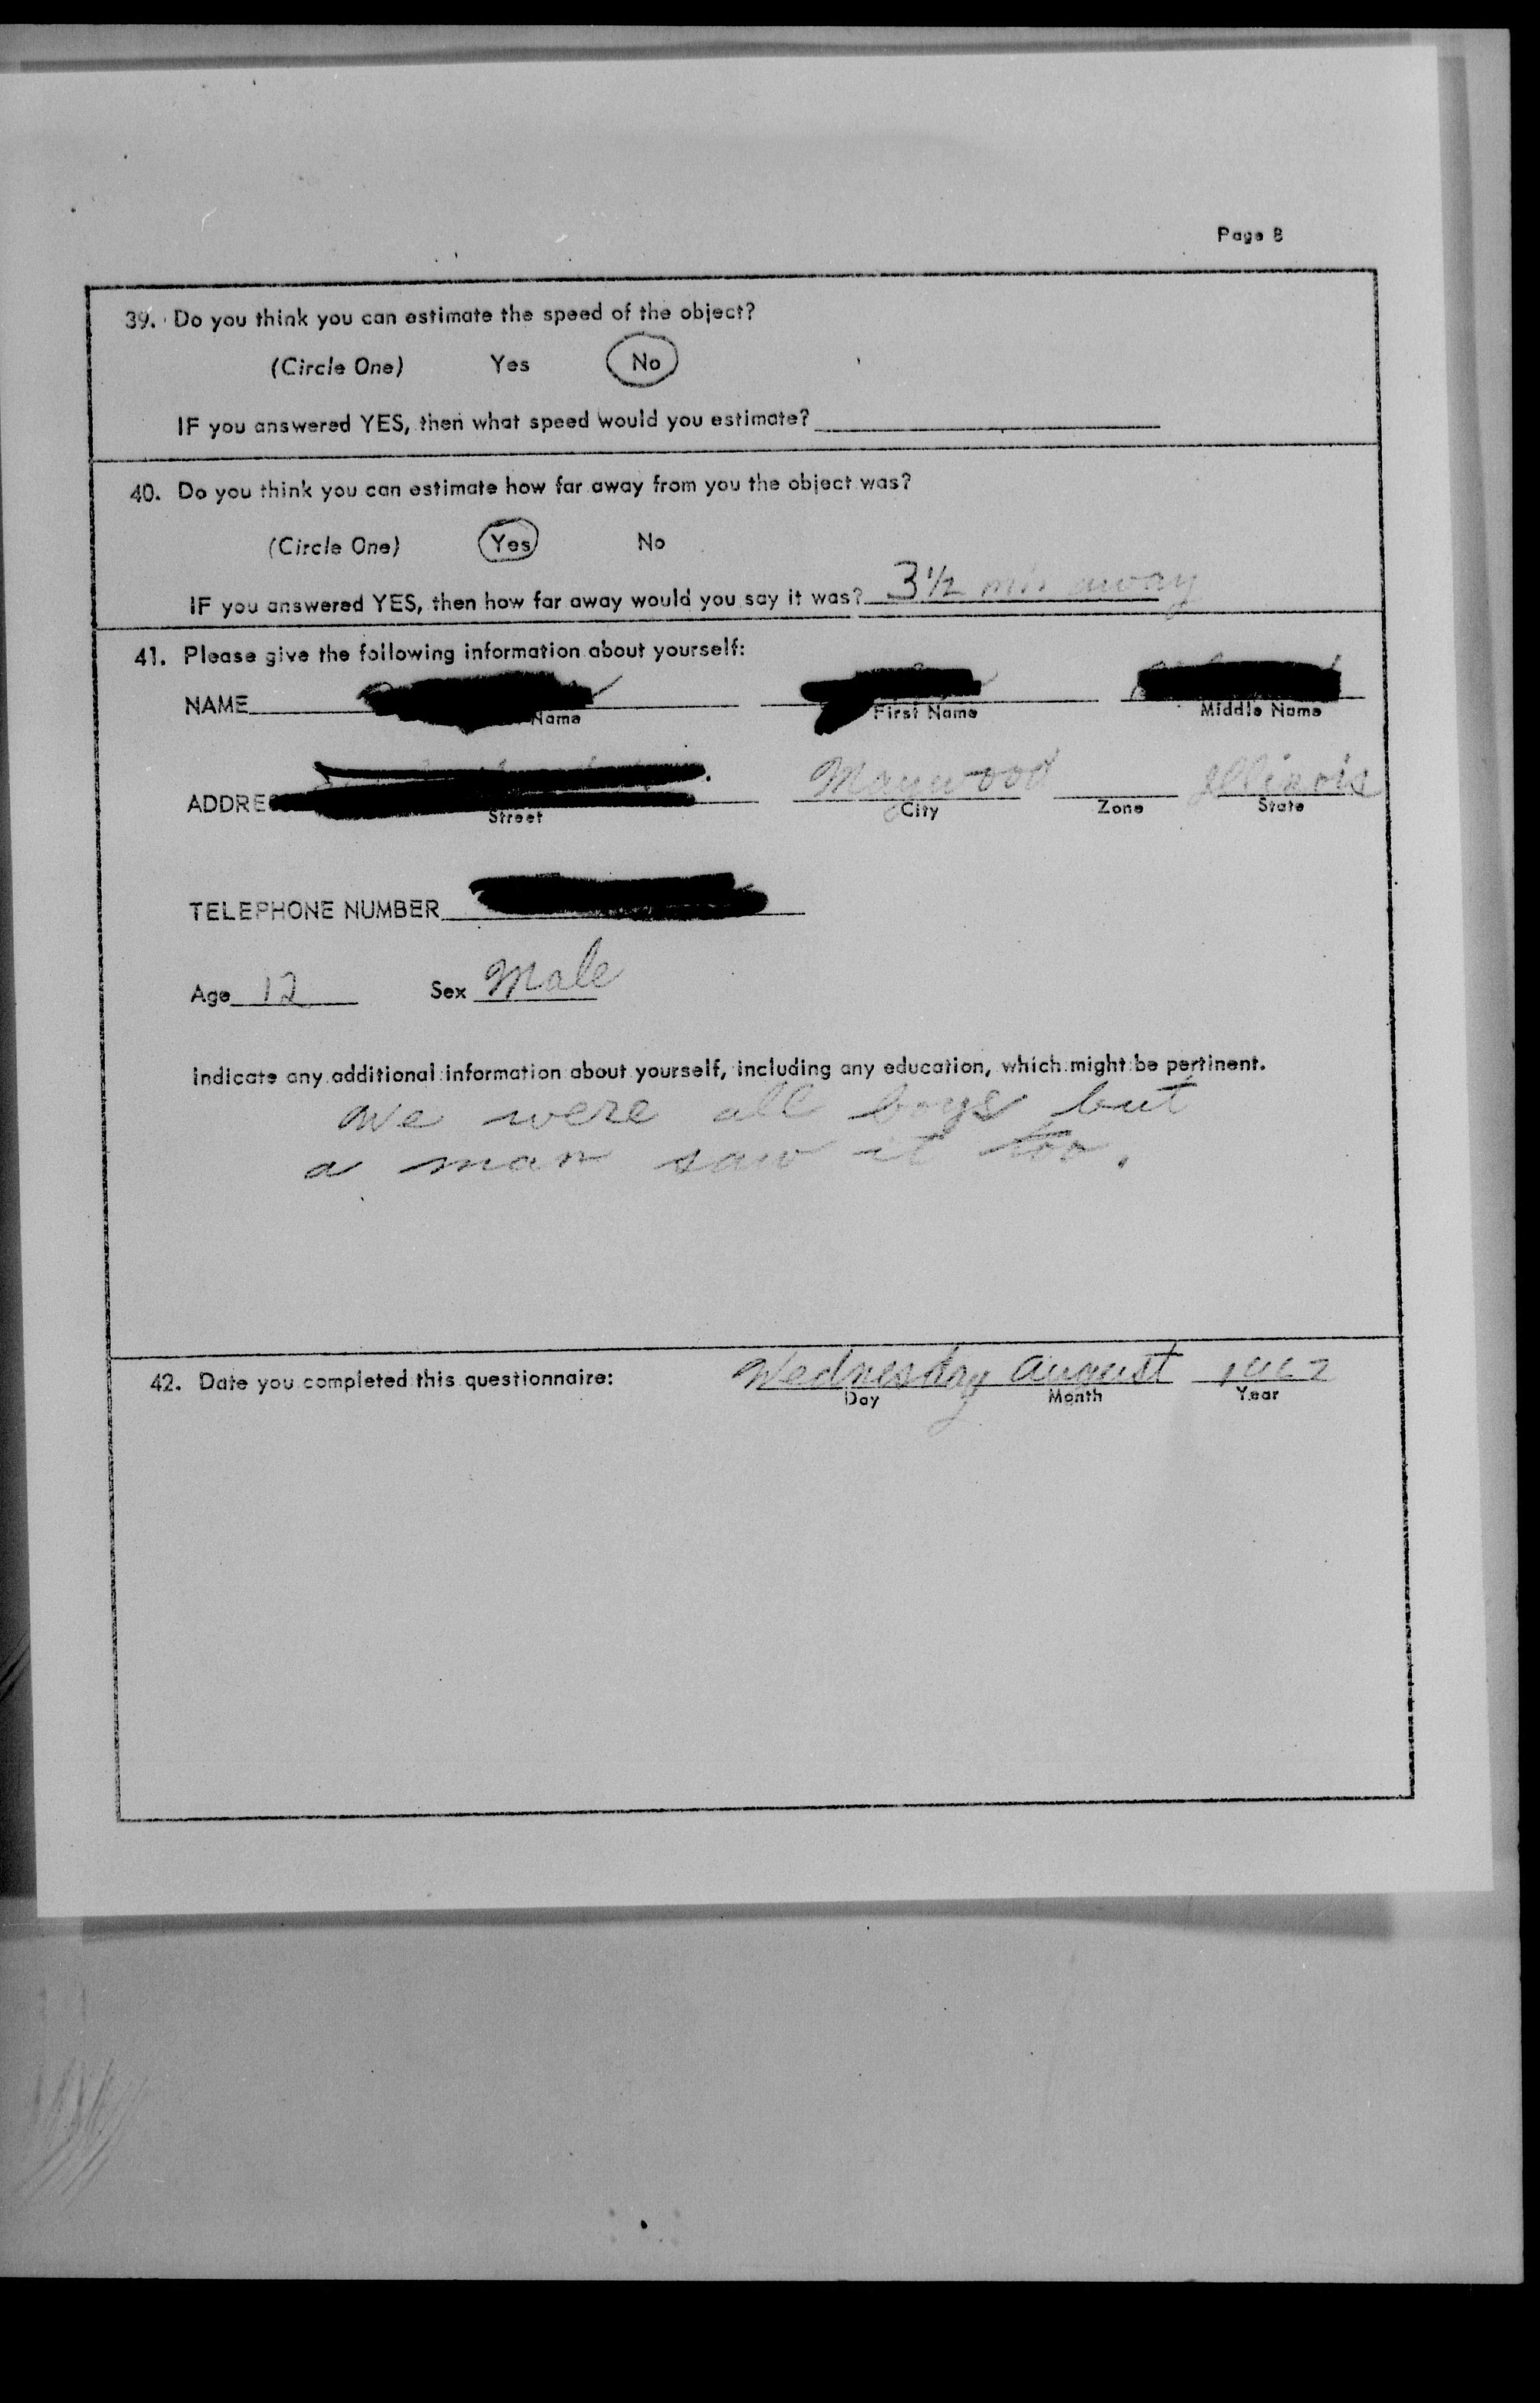 Page 8
39. Do you think you can estimate the speed of the object?
(Circle One) Yes No
IF you answered YES, then what speed would you estimate?
40. Do you think you can estimate how far away from you the object was?
(Circle One) Yes No
IF you answered YES, then how far away would you say it was? 3 1/2 away
41. Please give the following information about yourself:
NAME
Name First Name Middle Name
Maywood Illinois
Street City Zone State
TELEPHONE NUMBER
Age 12 Sex Male
Indicate any additional information about yourself, including any education, which might be pertinent.
We were all boys but
a man saw it too.
42. Date you completed this questionnaire: Wednesday August 1962
Day Month Year